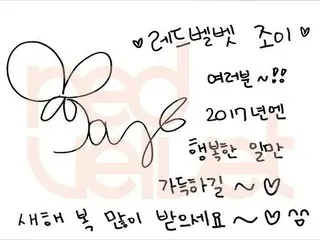 ♥레드벨벳 조이♥
여러분~!!
2017년엔
행복한 일만
가득하길~♡
새해 복 많이 받으세요~♡ ^^
red
velvet